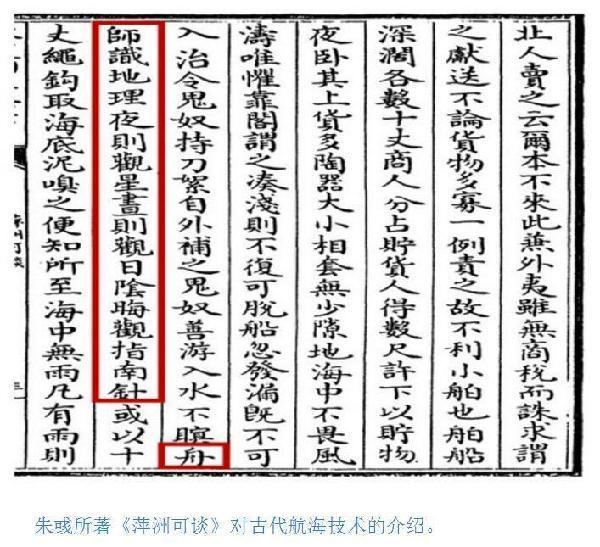 北人賣之云爾本不來此兼外夷雖無商稅而誅求謂
之獻送不論貨物多寡一例責之故不利小舶也舶船
深濶各數十丈商人分占貯貨人得數尺許下以貯物
夜卧其上貨多陶器大小相套無少隙地海中不畏風
濤唯懼靠閣謂之凑淺則不復可脫船忽發漏旣不可
入治令鬼奴持刀絮自外補之鬼奴善游入水不瞑舟
師識地理夜則觀星晝則觀日陰晦觀指南針或以十
丈繩鈎取海底泥嗅之便知所至海中無雨凡有雨則
朱彧所著《萍洲可谈》对古代航海技术的介绍。